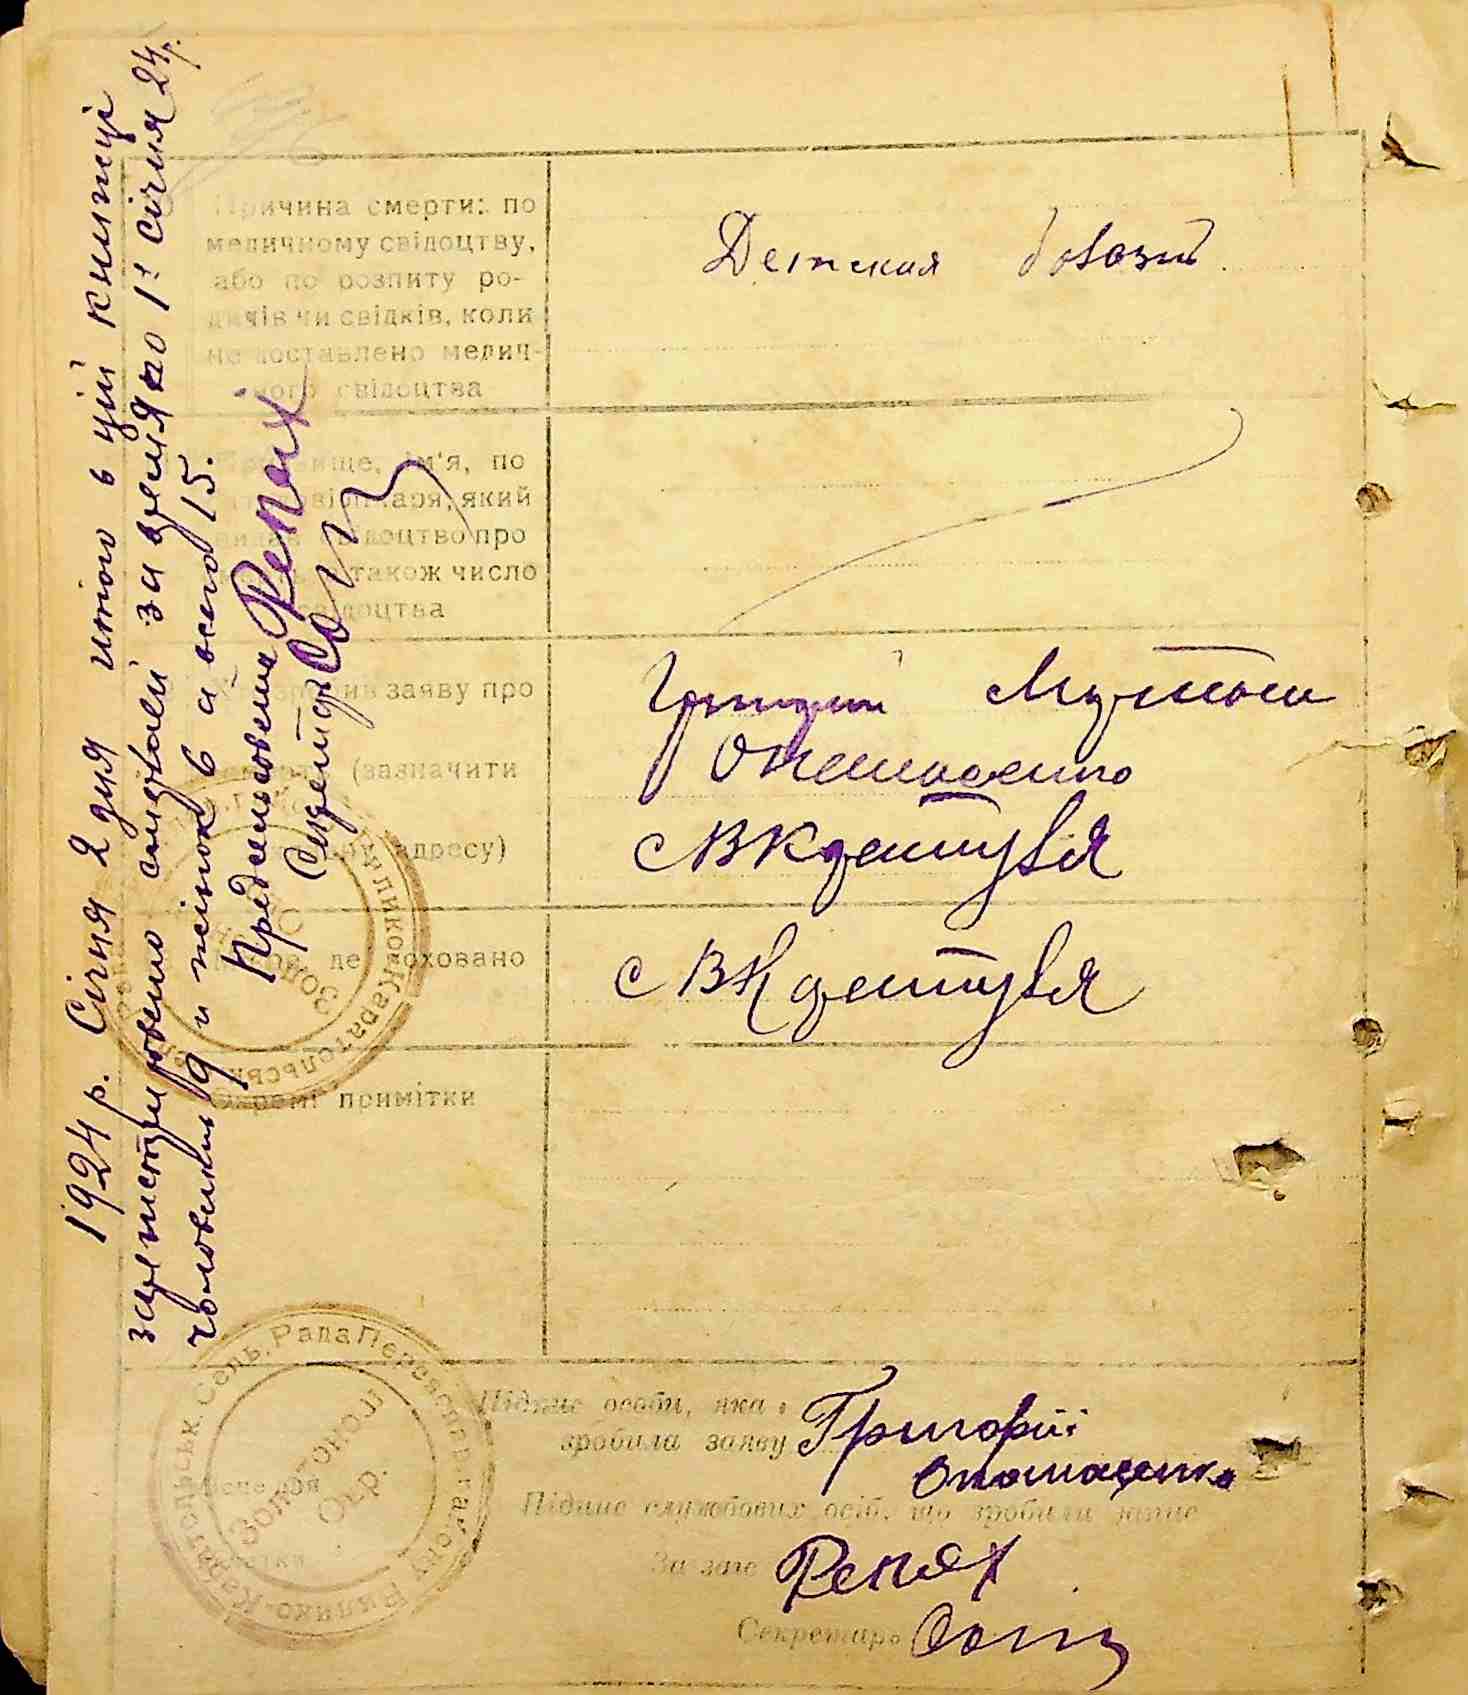 1924 р. Січня 2 дня итого в цій книжці
зарегистровано смертей за время по 1е січня 24 р.
чоловіків 9 и жінок 6 а всего 15.
Предсельсовета Репях
Секретар
Причина смерти: по
медичному свідоцтву,
або по розпиту ро-
дичів чи свідків, коли
не доставлено медич-
ного свідоцтва
Детская болезнь
Прізвище, ім'я, по
лікаря, який
видав свідоцтво про
також число
свідоцтва
заяву про
(зазначити
адресу)
Григорий
Опанасенко
с В Каратуля
де поховано
с В Каратуля
Окремі примітки
Підпис особи, яка
зробила заяву Григорій
Опанасенко
Підпис службових осіб, що зробили запис
За заг Репях
Секретарь
Сель. Рада Переяслав
Велико-Каратульськ.
Золотонош
Окр.